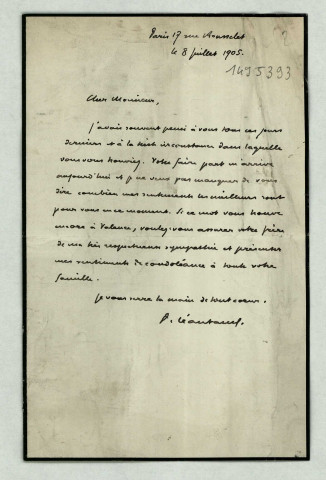 Paris 17 rue Rousselet
le 8 juillet 1905.
1495393
Cher Monsieur,
J'avais souvent pensé à vous tous ces jours
derniers et à la triste circonstance dans laquelle
vous vous trouviez. Votre faire part m'arrive
aujourd'hui et je ne veux pas manquer de vous
dire combien mes sentiments les meilleurs sont
pour vous en ce moment. Si ce mot vous trouve
encore à Valence, voulez-vous assurer votre frère
de ma très respectueuse sympathie et présenter
mes sentiments de condoléance à toute votre
famille.
Je vous serre la main de tout coeur.
P. Léautaud.